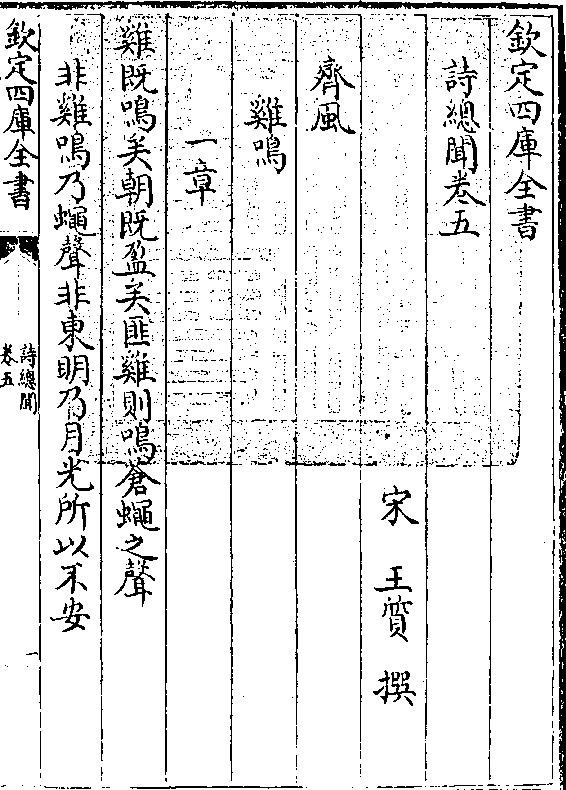 欽定四庫全書
詩總聞卷五
宋 王質 撰
齊風
雞鳴
一章
雞既鳴矣朝既盈矣匪雞則鳴蒼蠅之聲
非雞鳴乃蠅聲非東明乃月光所以不安
欽定四庫全書
詩總聞
卷五
一